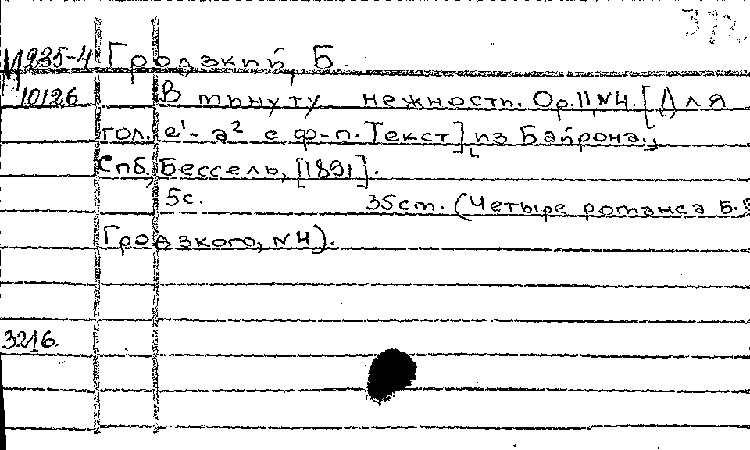 И935-4 Гродзкий, Б.
10126 В минуту нежности. Ор. 11, N4. [Для
гол. e¹-a² с ф-п. Текст] из Байрона.
Спб, Бессель, [1891].
5с. 35см. (Четыре романса Б.
Гродзкого, N4).
3216.